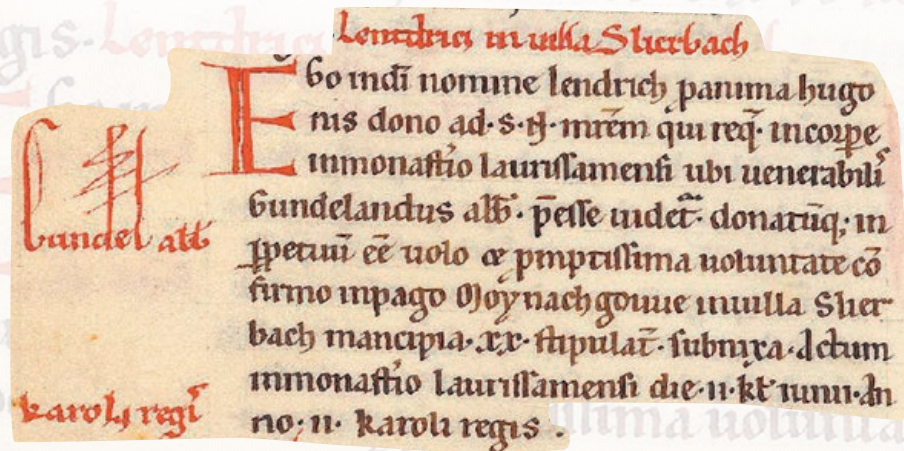 Lendrici in uilla Slierbach
Ego in dī nomine lendrich p anima hugo
nis dono ad · s · N · mr̄em qui req̄ · in corpe
in monastio laurissamensi ubi uenerabili
Gundelandus abb · p̄esse uidet · donatūq; in
ppetuū eē uolo & pmptissima uoluntate cō
firmo in pago Moynachgouue in uilla Slier
bach mancipia · xx · stipulat̄ · subnixa · Actum
in monastio laurissamensi die · ii · kł iunii · An
no · ii · karoli regis .
Gundel abb
karoli regis